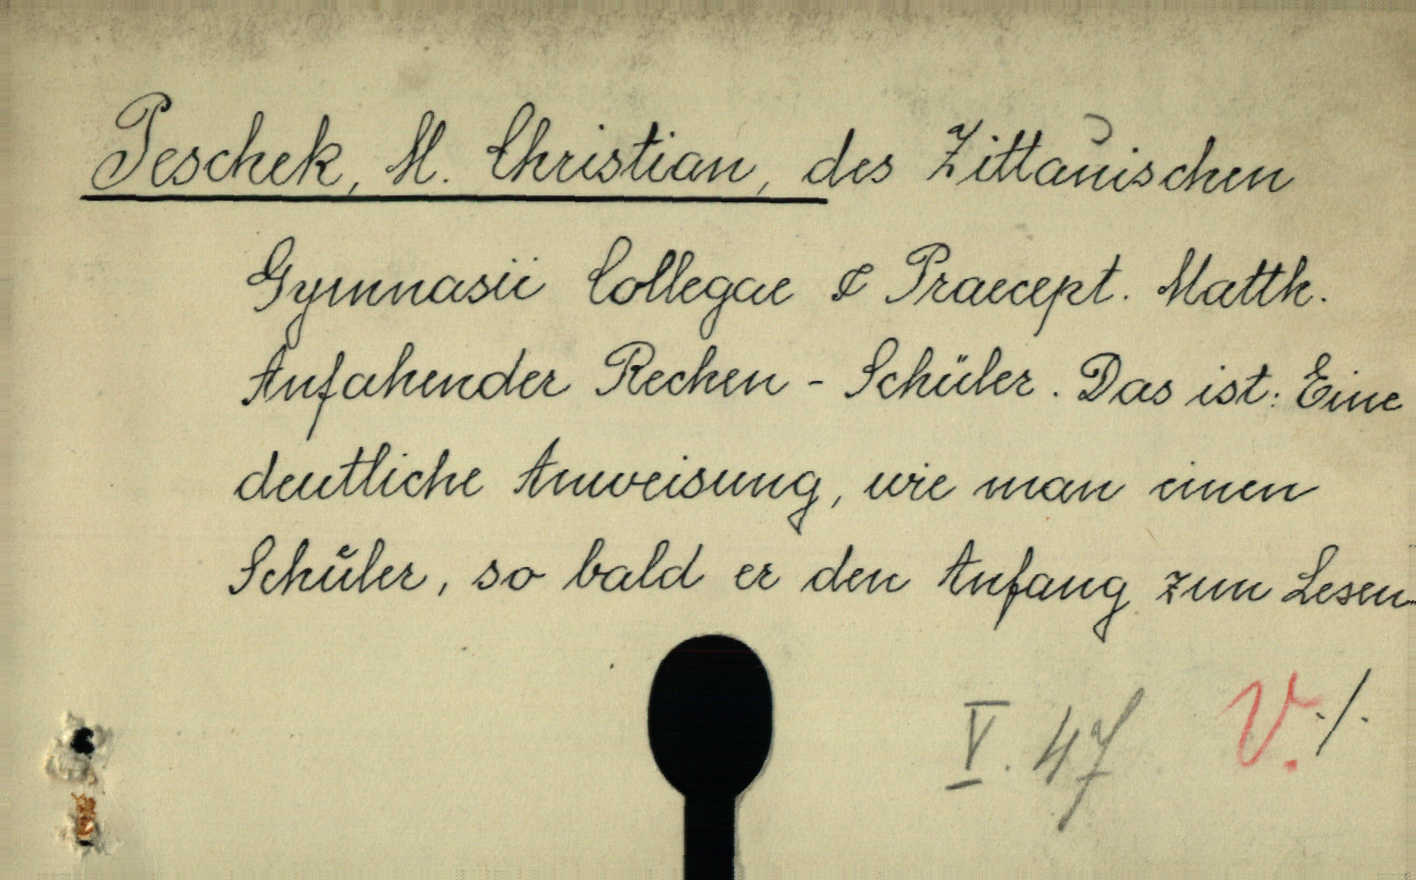 Peschek, M. Christian, des Zittauischen
Gymnasii Collegae & Praecept. Matth.
Anfahender Rechen-Schüler. Das ist: Eine
deutliche Anweisung, wie man einen
Schuͤler, so bald er den Anfang zum Lesen
V. 47 V. ./.